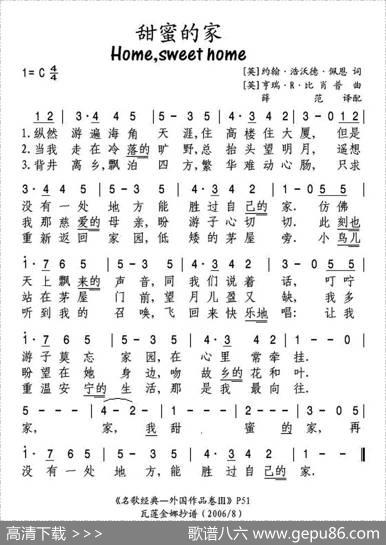 甜蜜的家
Home,sweet home
1=C 4/4
[英]约翰·浩沃德·佩恩 词
[英]亨瑞·R·比肖普 曲
薛 范 译配
1 2 | 3·4 4 5 | 5-3 5 | 4·3 4 2 | 3-0 1 2 |
1.纵然 游遍海角 天涯,住 高楼住大厦, 但是
2.当我 走在冷落的 旷野,总 抬头望明月, 遥想
3.背井 离乡,飘泊 四方,繁 华难动心肠, 只求
3·4 4 5 | 5-3 5 | 4·3 4 2 | 1-0 5 5 |
没有一处 地方能 胜过自己的 家. 仿佛
我那慈爱的 母亲,盼 游子心切 切. 此刻也
重新返回 家园,低 矮的茅屋 旁. 小鸟儿
1·7 6 5 | 5-3 5 | 4·3 4 2 | 3-0 5 5 |
天上飘来的 声音,同 我们说着 话, 叮咛
站在茅屋 门前,望 月儿盈又 缺, 我多
听到我的 召唤,飞 回来快乐地 唱: 让我
1·7 6 5 | 5-3 5 | 4·3 4 2 | 1-0 |
游子莫忘 家园,在 心里常牵 挂.
盼望在她 身边,吻 故乡的花和 叶.
重温安宁的 生活,那 是我最向 往.
5--- | 4-2- | 1-1- | 2--- | 3-0 5 |
家, 家,我 甜 蜜的 家,再
1·7 6 5 | 5-3 5 | 4·3 4 2 | 1-0
没有一处 地方,能 胜过自己的 家.
《名歌经典—外国作品卷Ⅲ》P51
瓦莲金娜抄谱（2006/8）
高清下载 >>> 歌谱八六 www.gepu86.com